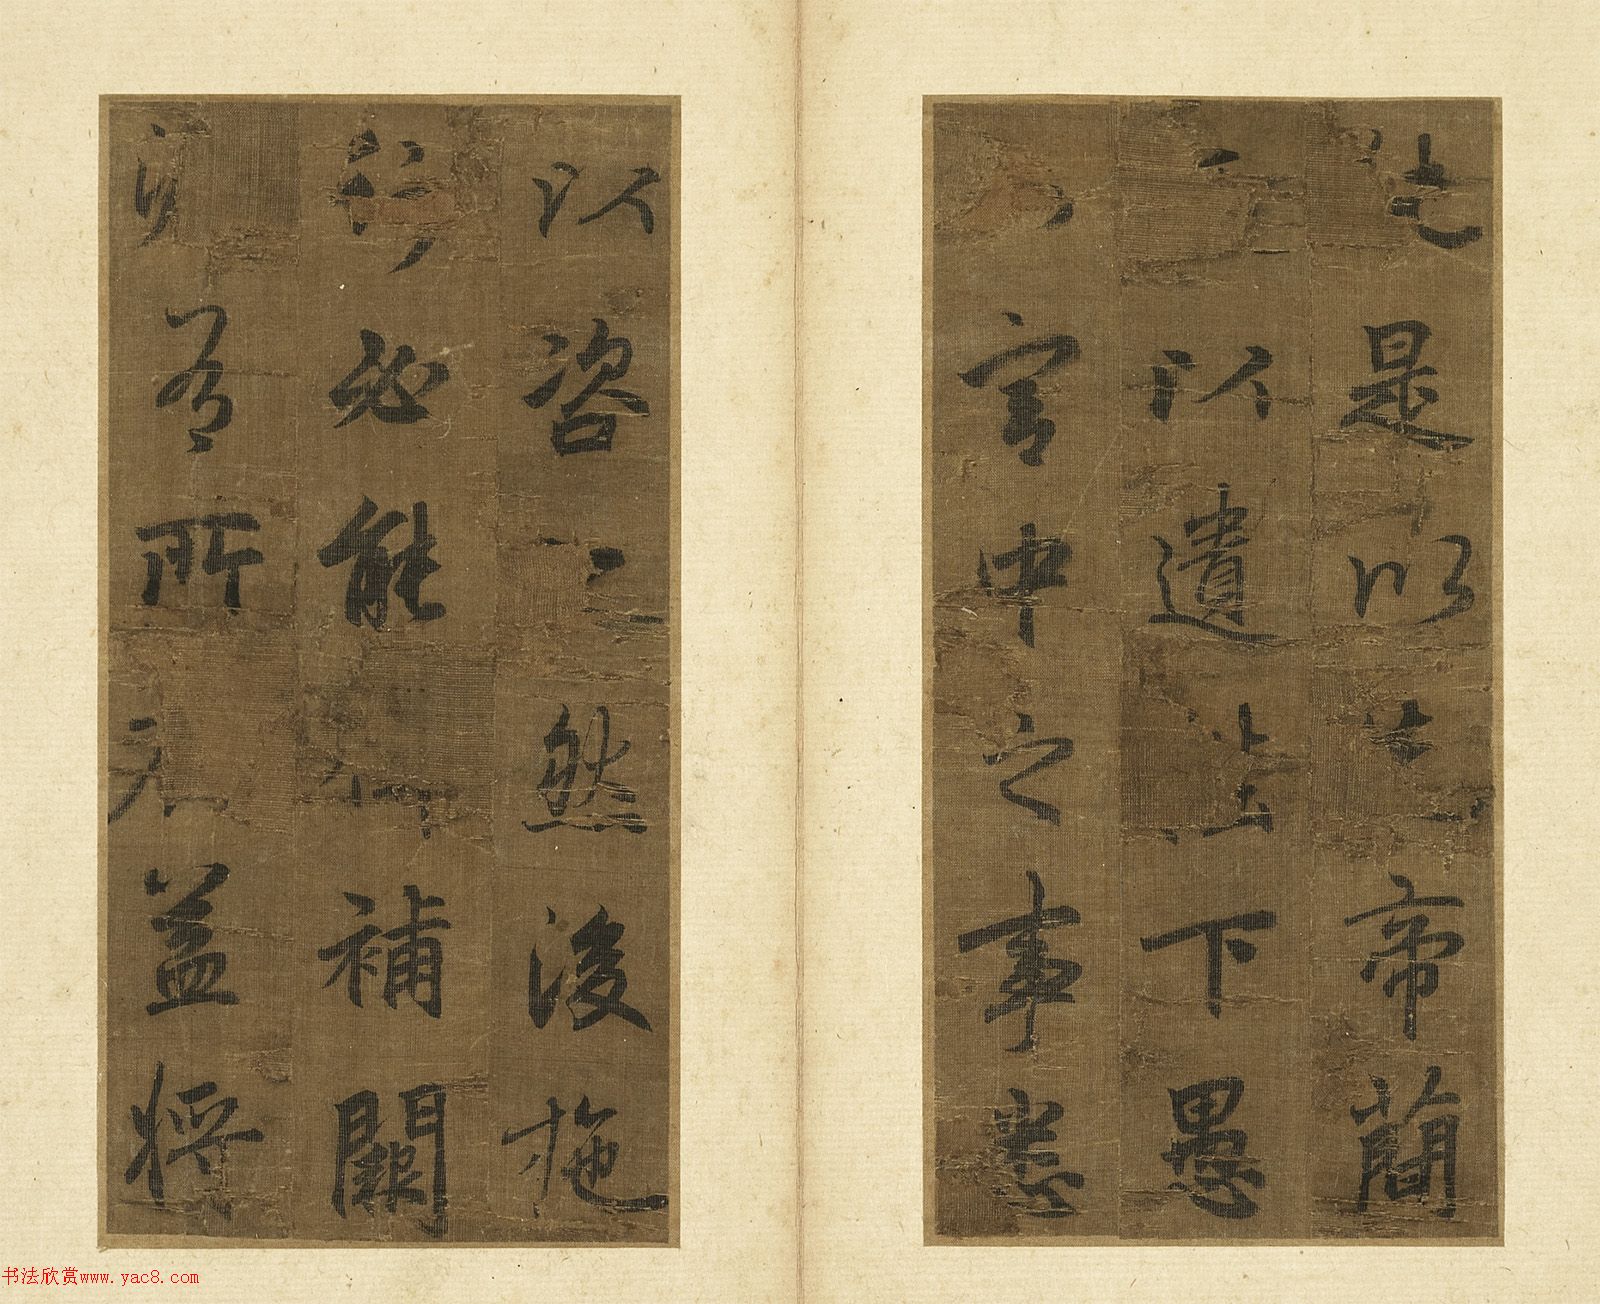 是以帝簡
以遺陛下愚
宮中之事悉
以咨然後施
行必能補闕
有所益將
书法欣赏www.yac8.com